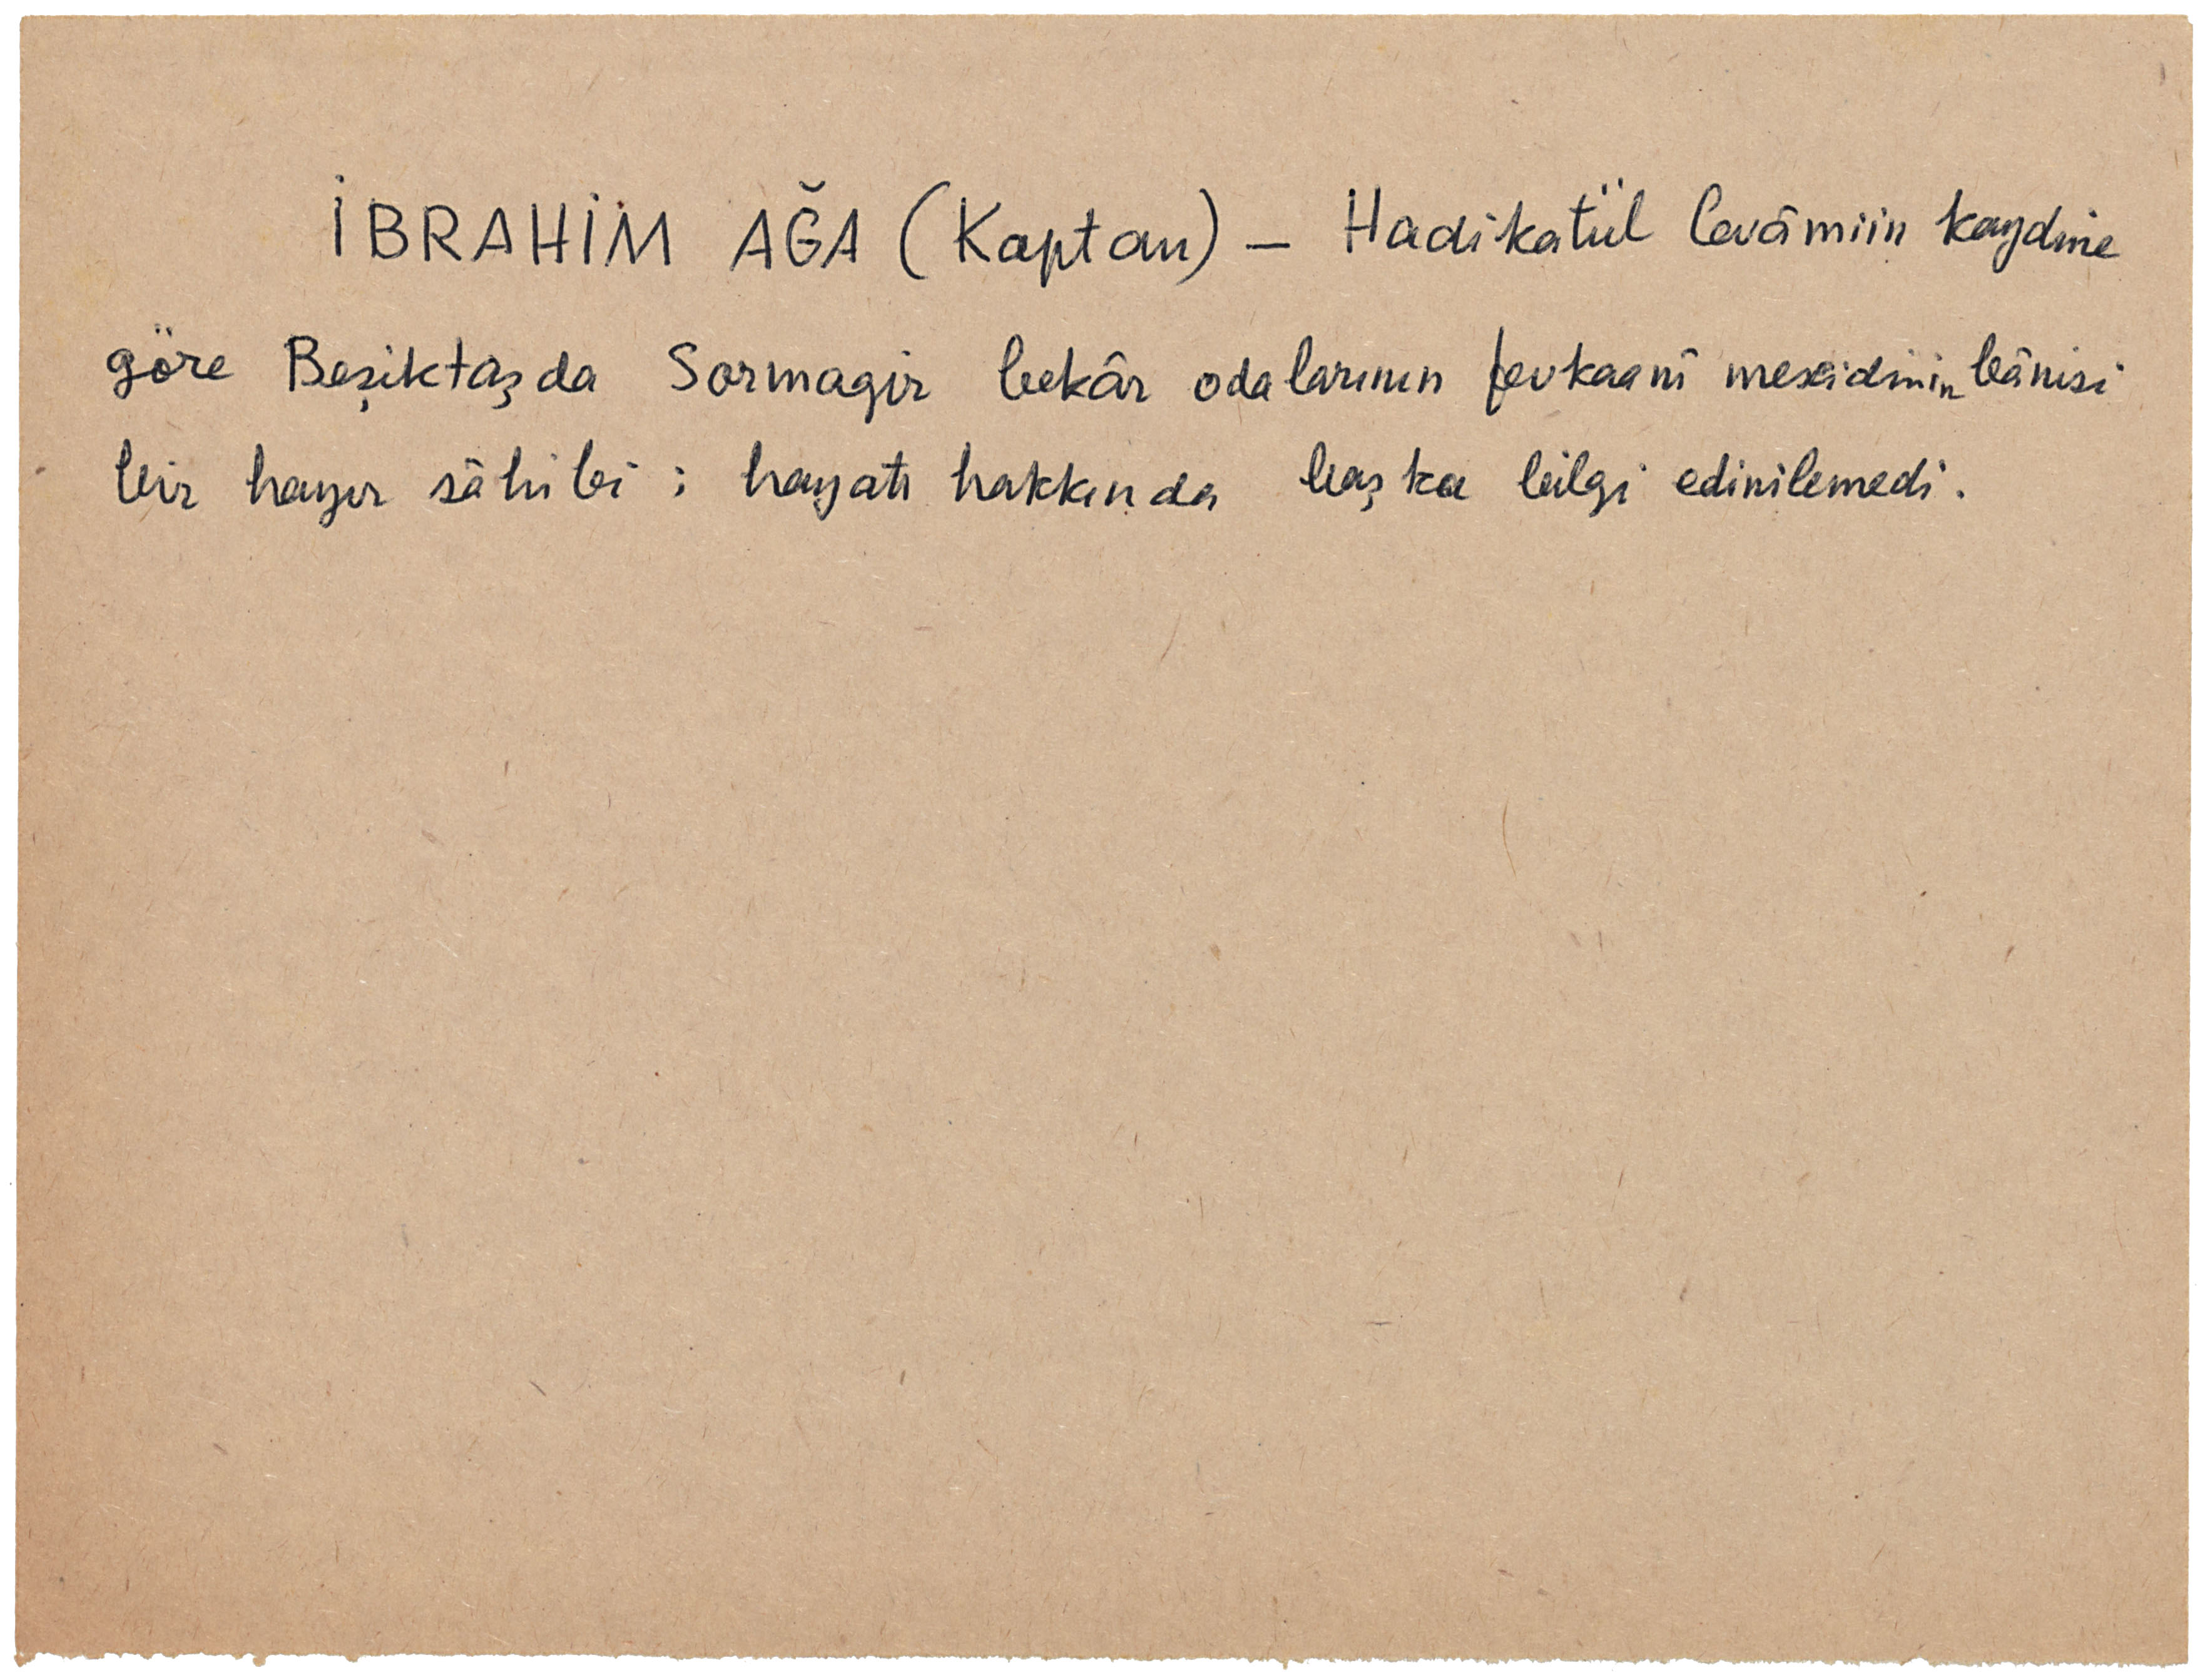 İBRAHİM AĞA (Kaptan) — Hadikatül Cevâmiin kaydine
göre Beşiktaşda Sormagir bekâr odalarının fevkaanî mescidinin bânisi
bir hayır sâhibi ; hayatı hakkında başka bilgi edinilemedi.